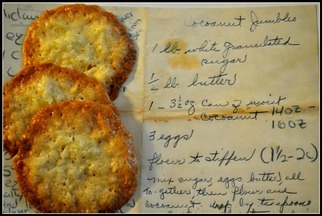 Cocoanut Jumbles
1 lb white granulated
sugar
1/2 lb butter
1 - 3 1/2 oz can of moist
cocoanut
14 OZ
16 OZ
3 eggs
flour to stiffen (1 1/2-2c)
mix sugar eggs butter all
to-gether then flour and
cocoanut. drop by teaspoons